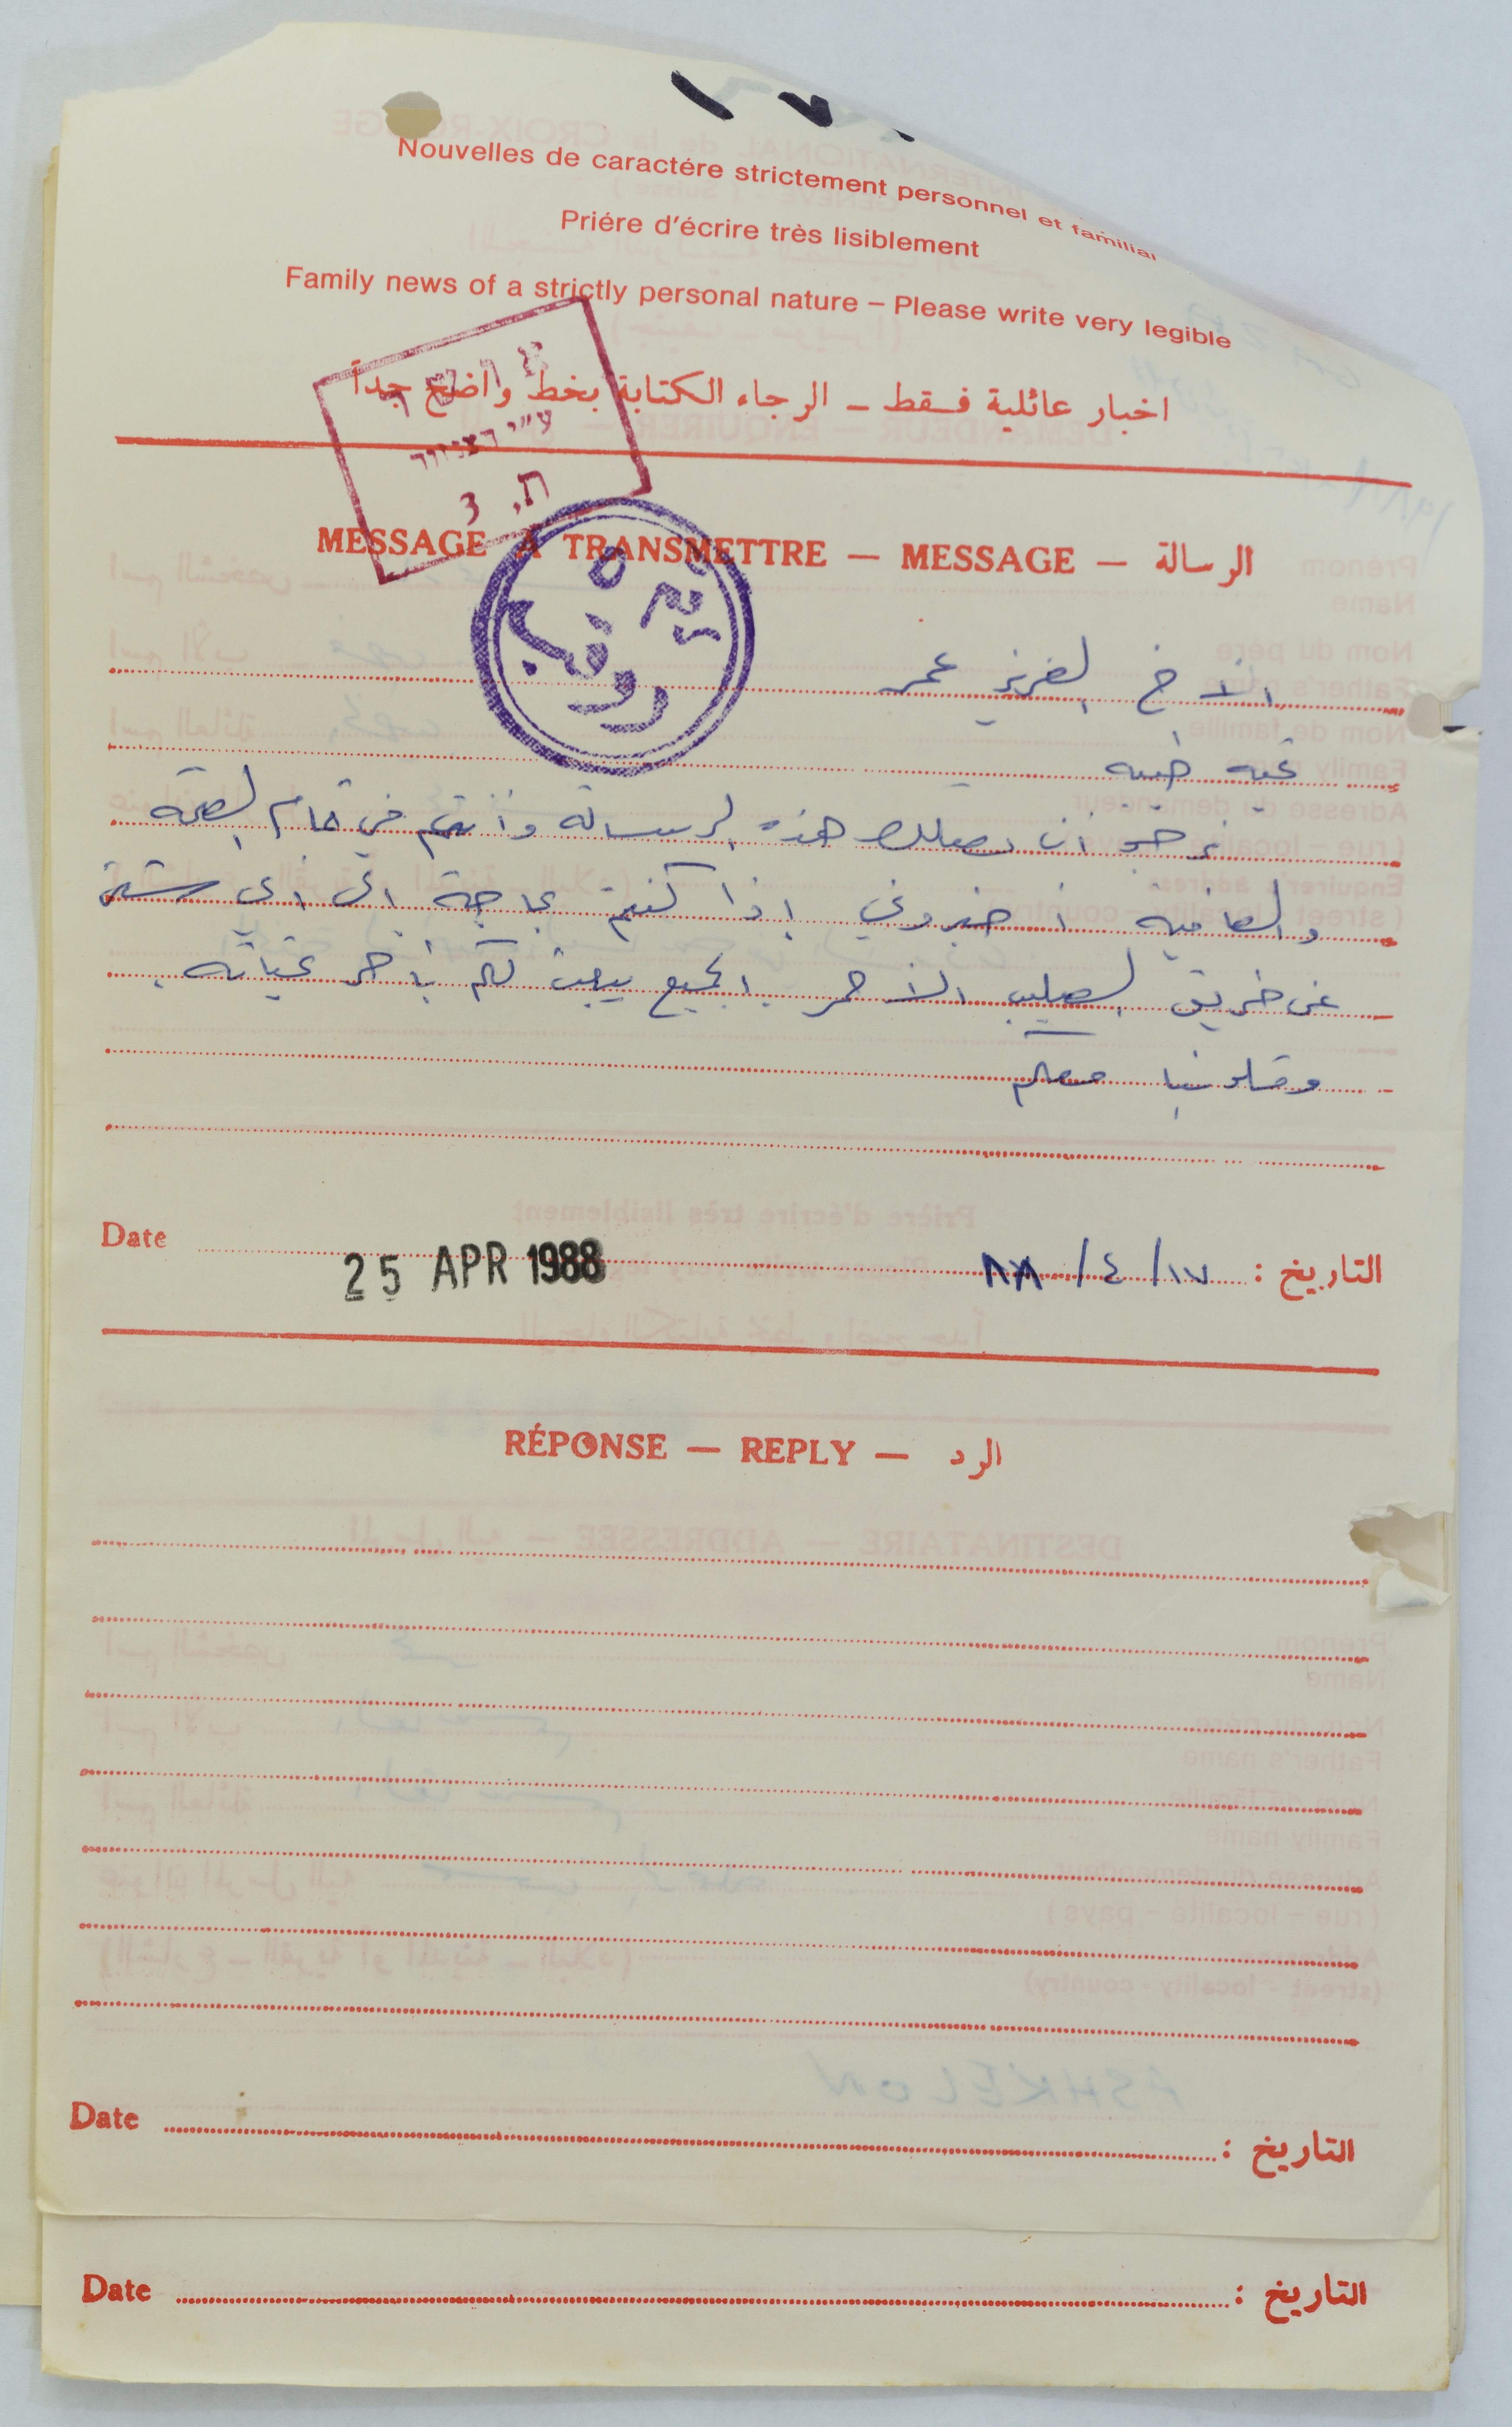 Nouvelles de caractére strictement personnel et familial
Priére d'écrire très lisiblement
Family news of a strictly personal nature – Please write very legible
اخبار عائلية فقط – الرجاء الكتابة بخط واضح جداً
ע"י הצנזור
ת. 3
MESSAGE A TRANSMETTRE — MESSAGE — الرسالة
الاخ العزيز عمر
تحية طيبه
نرجو ان تصلك هذه الرسالة وانتم في تمام الصحة
والعافية اخبروني إذا كنتم بحاجة الى اي شئ
عن طريق الصليب الاحمر الجميع يبعث لكم بأحر تحياته
وقلوبنا معكم
Date 25 APR 1988 التاريخ : ١٧/ ٤ / ٨٨
RÉPONSE — REPLY — الرد
Date التاريخ :
Date التاريخ :